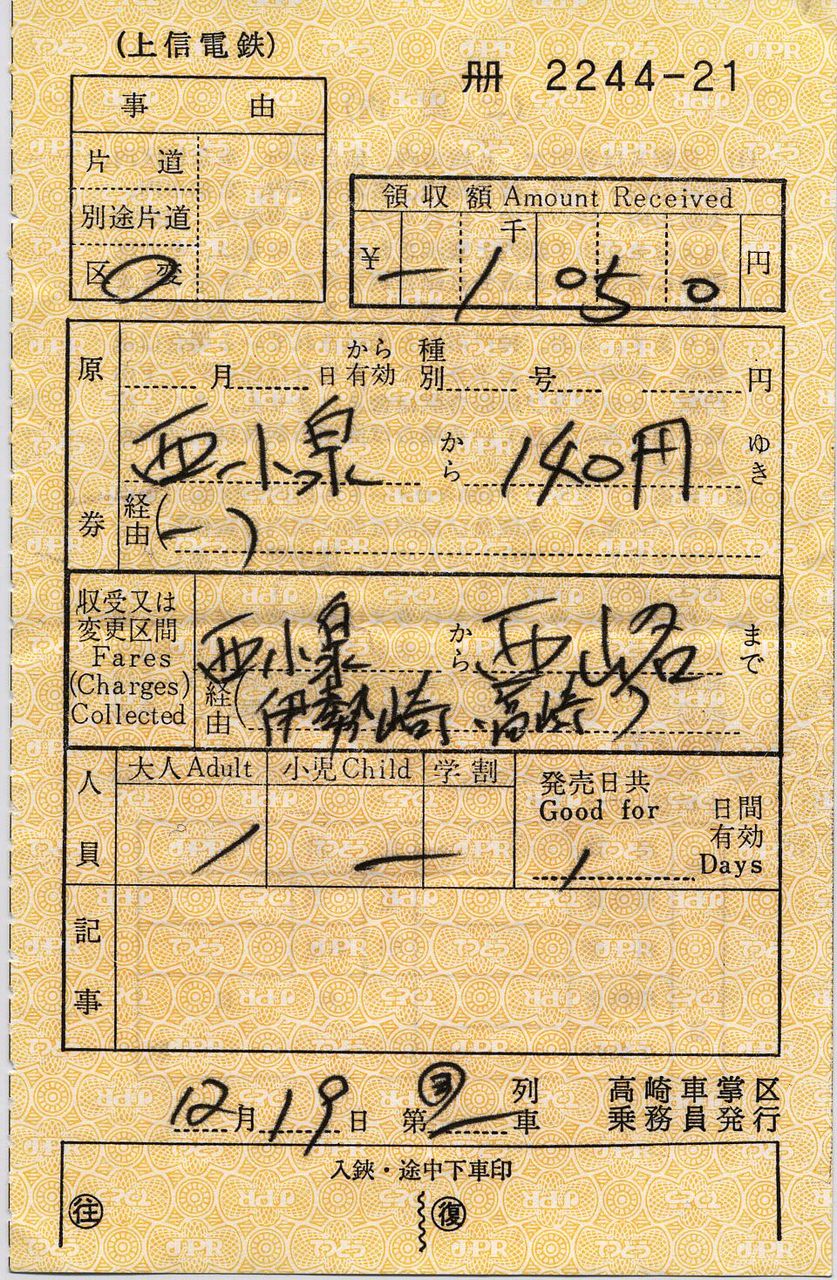 (上信電鉄)
冊 2244-21
事由
片道
別途片道
区変
領収額 Amount Received
千
¥ー1050円
原券
月 日から有効 種別 号 円
西小泉から140円ゆき
経由(ー)
収受又は変更区間
Fares
(Charges)
Collected
西小泉から西山名まで
経由(伊勢崎、高崎)
人員
大人Adult 小児Child 学割
1 ー
発売日共
Good for
1
日間
有効
Days
記事
12月19日 第ー列車
高崎車掌区
乗務員発行
入鋏・途中下車印
往 復